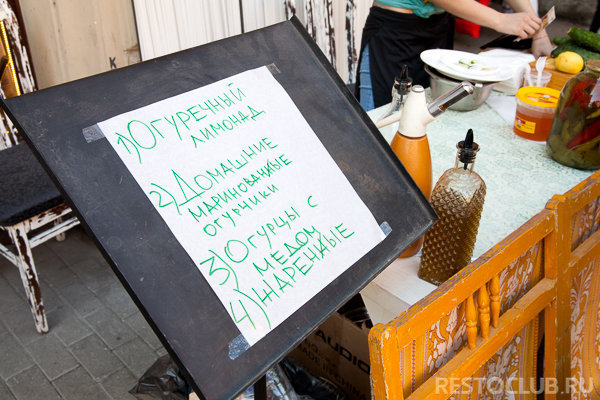 1) ОГУРЕЧНЫЙ
ЛИМОНАД
2) ДОМАШНИЕ
МАРИНОВАННЫЕ
ОГУРЧИКИ
3) ОГУРЦЫ С
МЕДОМ
4) ЖАРЕННЫЕ
K
AUDIO
RESTOCLUB.RU